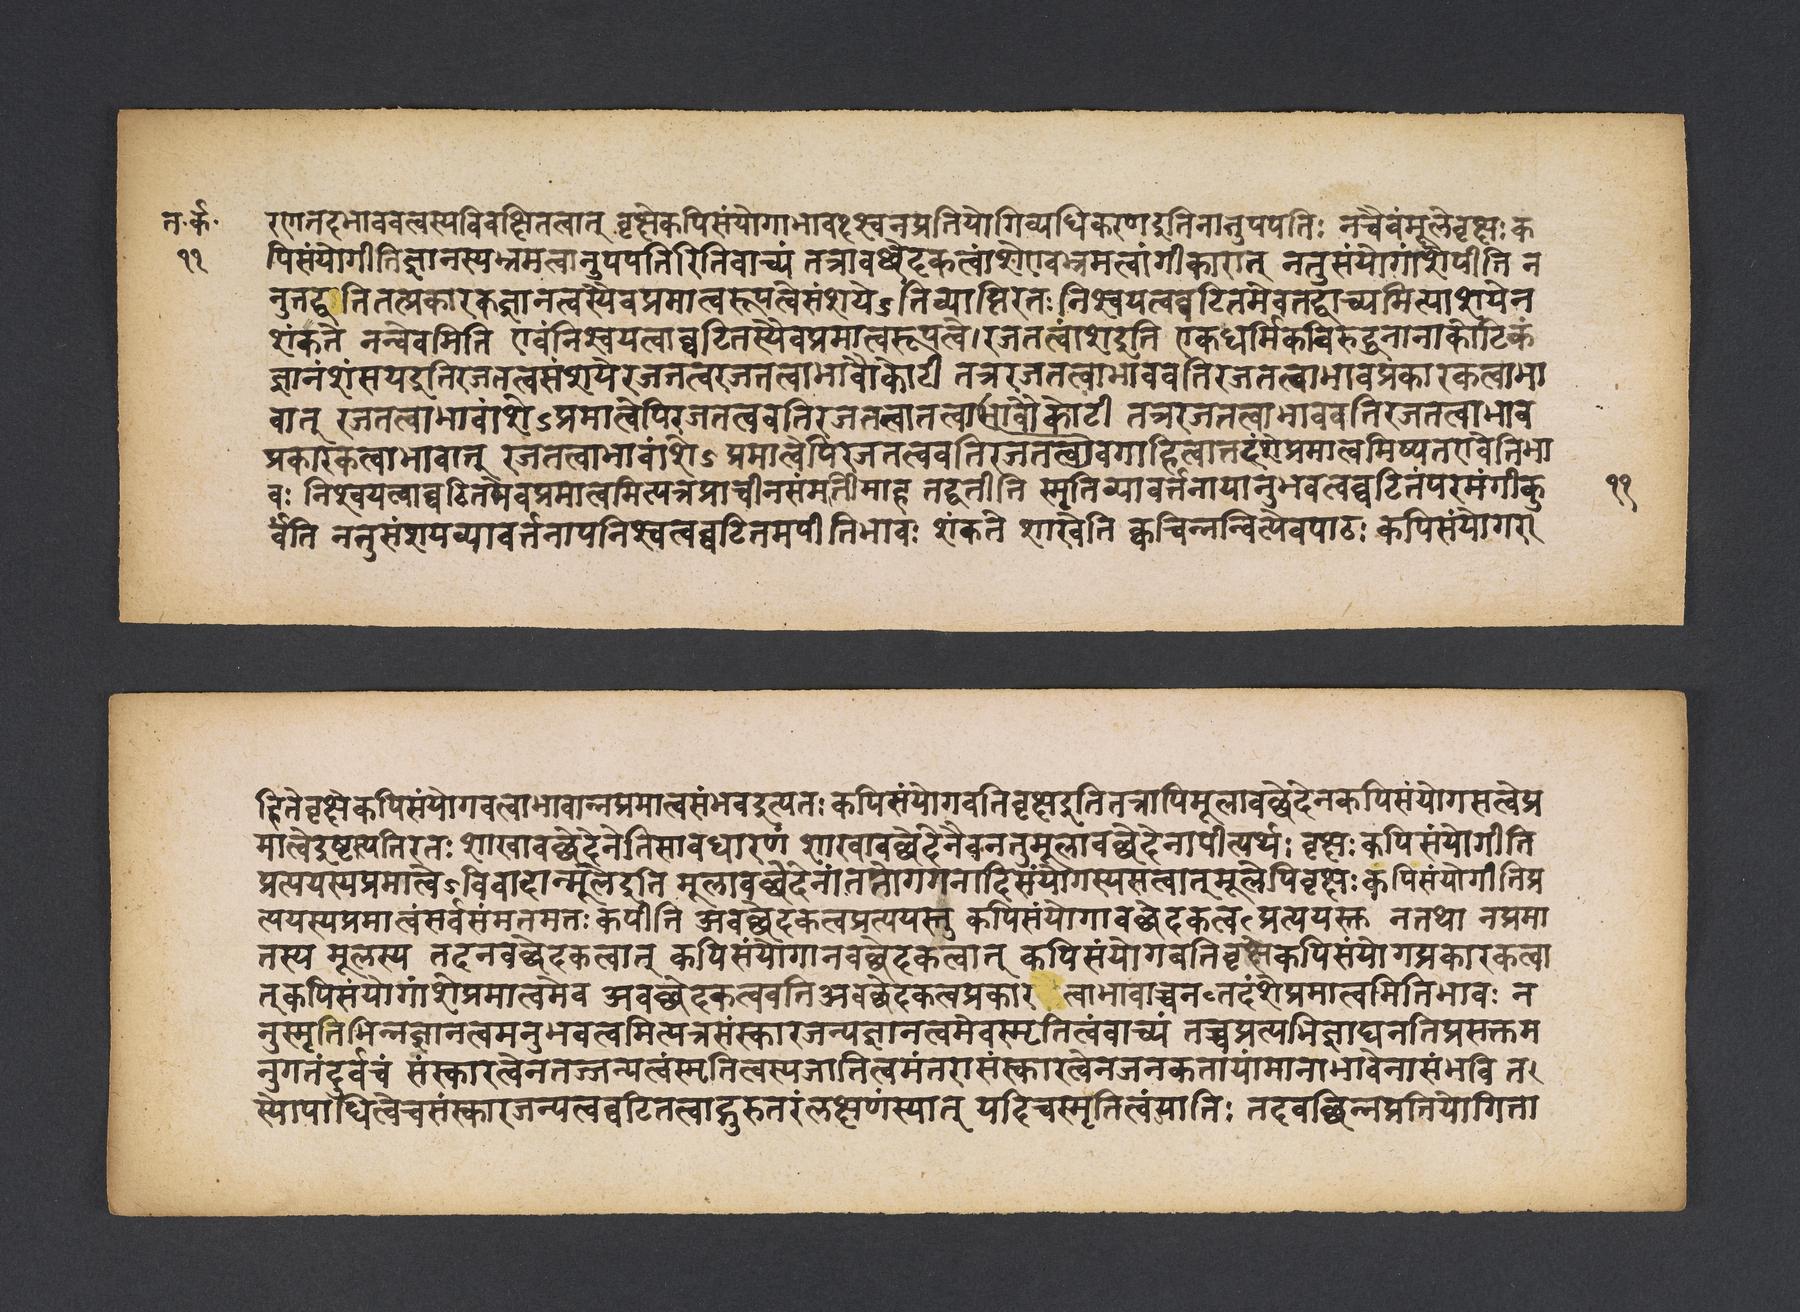 त॰र्क॰
११
रणतदभाववत्वस्यविवक्षितत्वात् वृक्षेकपिसंयोगाभावश्चनप्रतियोगिव्यधिकरणइतिनानुपपत्तिः नचैवंमूलेवृक्षः क
पिसंयोगीतिज्ञानस्यभ्रमत्वानुपपत्तिरितिवाच्यं तत्रावछेदकत्वांशेएवभ्रमत्वांगीकारात् नतुसंयोगांशेपीति न
नुतद्व तितत्प्रकारकज्ञानत्वस्यैवप्रमात्वरूपत्वेसंशयेऽतिव्याप्तिरतः निश्चयत्वघटितमेवतद्वाच्यमित्याशयेन
शंकते नन्वेवमिति एवंनिश्चयत्वाघटितस्यैवप्रमात्वरूपत्वे।रजतत्वांशइति एकधर्मिकविरुद्धनानाकोटिकं
ज्ञानंशंसयइतिरजतत्वसंशयेरजतत्वरजतत्वाभावौकोटी तत्ररजतत्वाभाववतिरजतत्वाभावप्रकारकत्वाभा
वात् रजतत्वाभावांशेऽप्रमात्वेपिरजतत्ववतिरजतत्वातत्वाभावौकोटी तत्ररजतत्वाभाववतिरजतत्वाभाव
प्रकारकत्वाभावात् रजतत्वाभावांशेऽ प्रमात्वेपिरजतत्ववतिरजतत्वावगाहित्वात्तदंशेप्रमात्वमिष्यतएवेतिभा
वः निश्चयत्वाघटितमेवप्रमात्वमित्यत्रप्राचीनसंमतीमाह तद्वतीति स्मृतिव्यावर्त्तनायानुभवत्वघटितंपरमंगीकु
र्वंति नतुसंशयव्यावर्त्तनायनिश्चत्वघटितमपीतिभावः शंकते शाखेति क्वचिन्नन्वित्येवपाठः कपिसंयोगरा
११
हितेवृक्षेकपिसंयोगवत्वाभावान्नप्रमात्वसंभवइत्यतः कपिसंयोगवतिवृक्षइतितत्रापिमूलावछेदेनकपिसंयोगसत्वेप्र
मात्वेइष्टापत्तिरतः शाखावछेदेनेतिसावधारणं शाखावछेदेनैवनतुमूलावछेदेनापीत्यर्थः वृक्षः कपिसंयोगीति
प्रत्ययस्यप्रमात्वेऽविवादान्मूलइति मूलावछेदेनांततोगगनादिसंयोगस्यसत्वात् मूलेपिवृक्षः कपिसंयोगीतिप्र
त्ययस्यप्रमात्वंसर्वसंमतमतः कपीति अवछेदकत्वप्रत्ययस्तु कपिसंयोगावछेदकत्वप्रत्ययस्तु नतथा नप्रमा
तस्य मूलस्य तदनवछेदकत्वात् कपिसंयोगानवछेदकत्वात् कपिसंयोगवतिवृक्षेकपिसंयोगप्रकारकत्वा
त्कपिसंयोगांशेप्रमात्वमेव अवछेदकत्ववतिअवछेदकत्वप्रकार त्वाभावाच्चनतदंशेप्रमात्वमितिभावः न
नुस्मृतिभिन्नज्ञानत्वमनुभवत्वमित्यत्रसंस्कारजन्यज्ञानत्वमेवस्मृतित्वंवाच्यं तच्चप्रत्यभिज्ञाद्यनतिप्रसक्तम
नुगतंदुर्वचं संस्कारत्वेनतज्जन्यत्वंस्मृतित्वस्यजातित्वमंतरासंस्कारत्वेनजनकतायांमानाभावेनासंभवि त
स्योपाधित्वेचसंस्कारजन्यत्वघटितत्वाद्गुरुतरंलक्षणंस्यात् यदिचस्मृतित्वंयातिः तदवछिन्नप्रतियोगिता